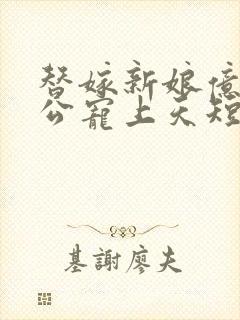 替嫁新娘億
公寵上天短
基謝廖夫